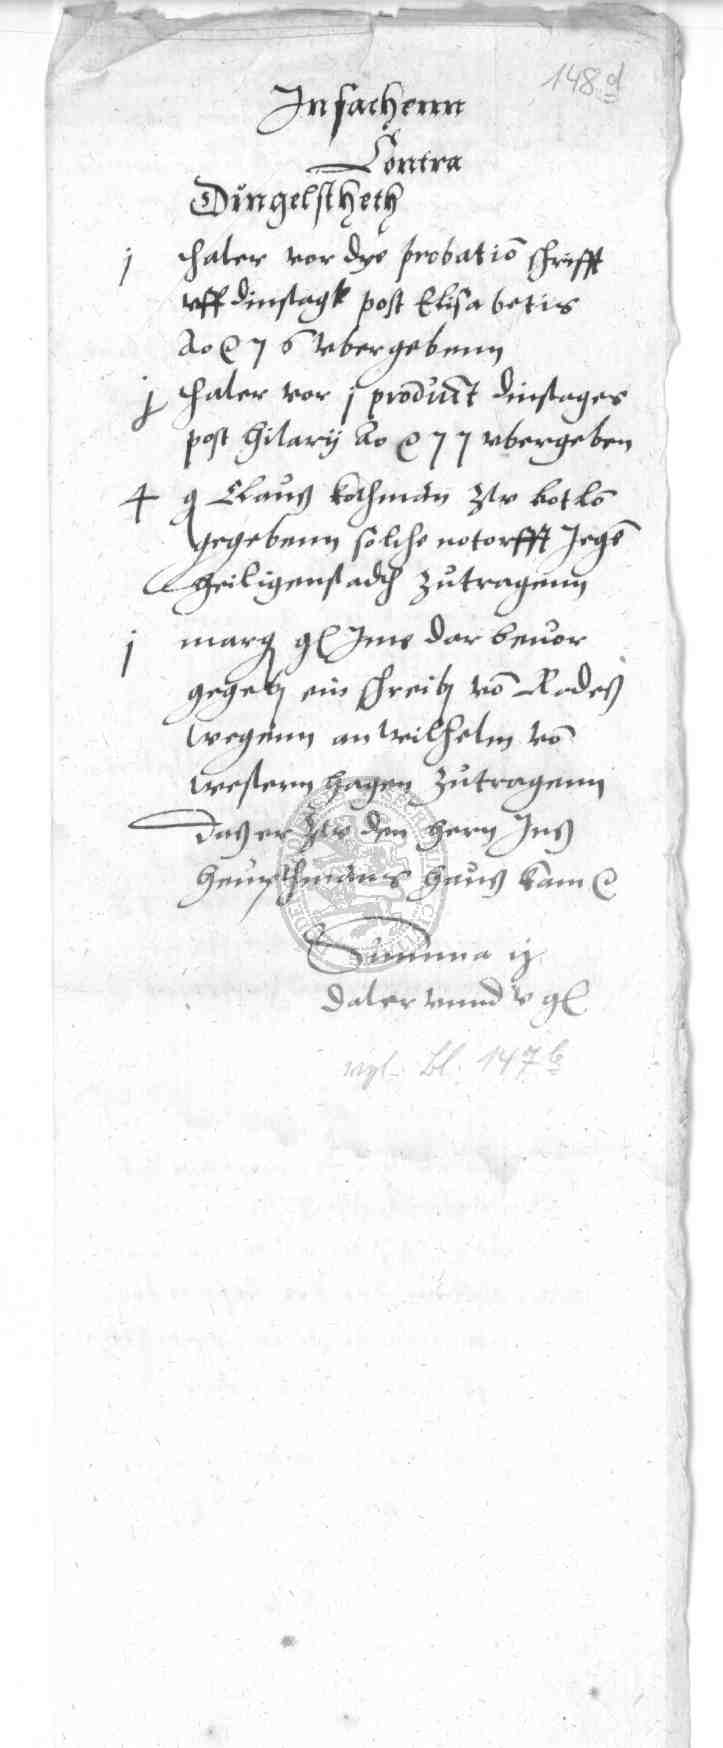 148 d
In sachenn
Contra
Dingelstheth
j thaler vor dye probatiō schrifft
vff dinstagk post Elisabetis
Ao 76 vbergebenn
j thaler vor j prodūct dinstages
post hilarij Ao 77 vbergeben
4 g Claus kothman zw botlō
gegebenn solche notorfft Jegē
heiligenstadth zutragenn
j marg gl Ime dar beuor
gegeb ein schreib vō Rades
wegenn an wilhelm vō
westernhagen zutragenn
das er zw den hern Ins
heuptmans haus kam
Summa ij
daler unnd v gl
vgl. Bl. 147 b